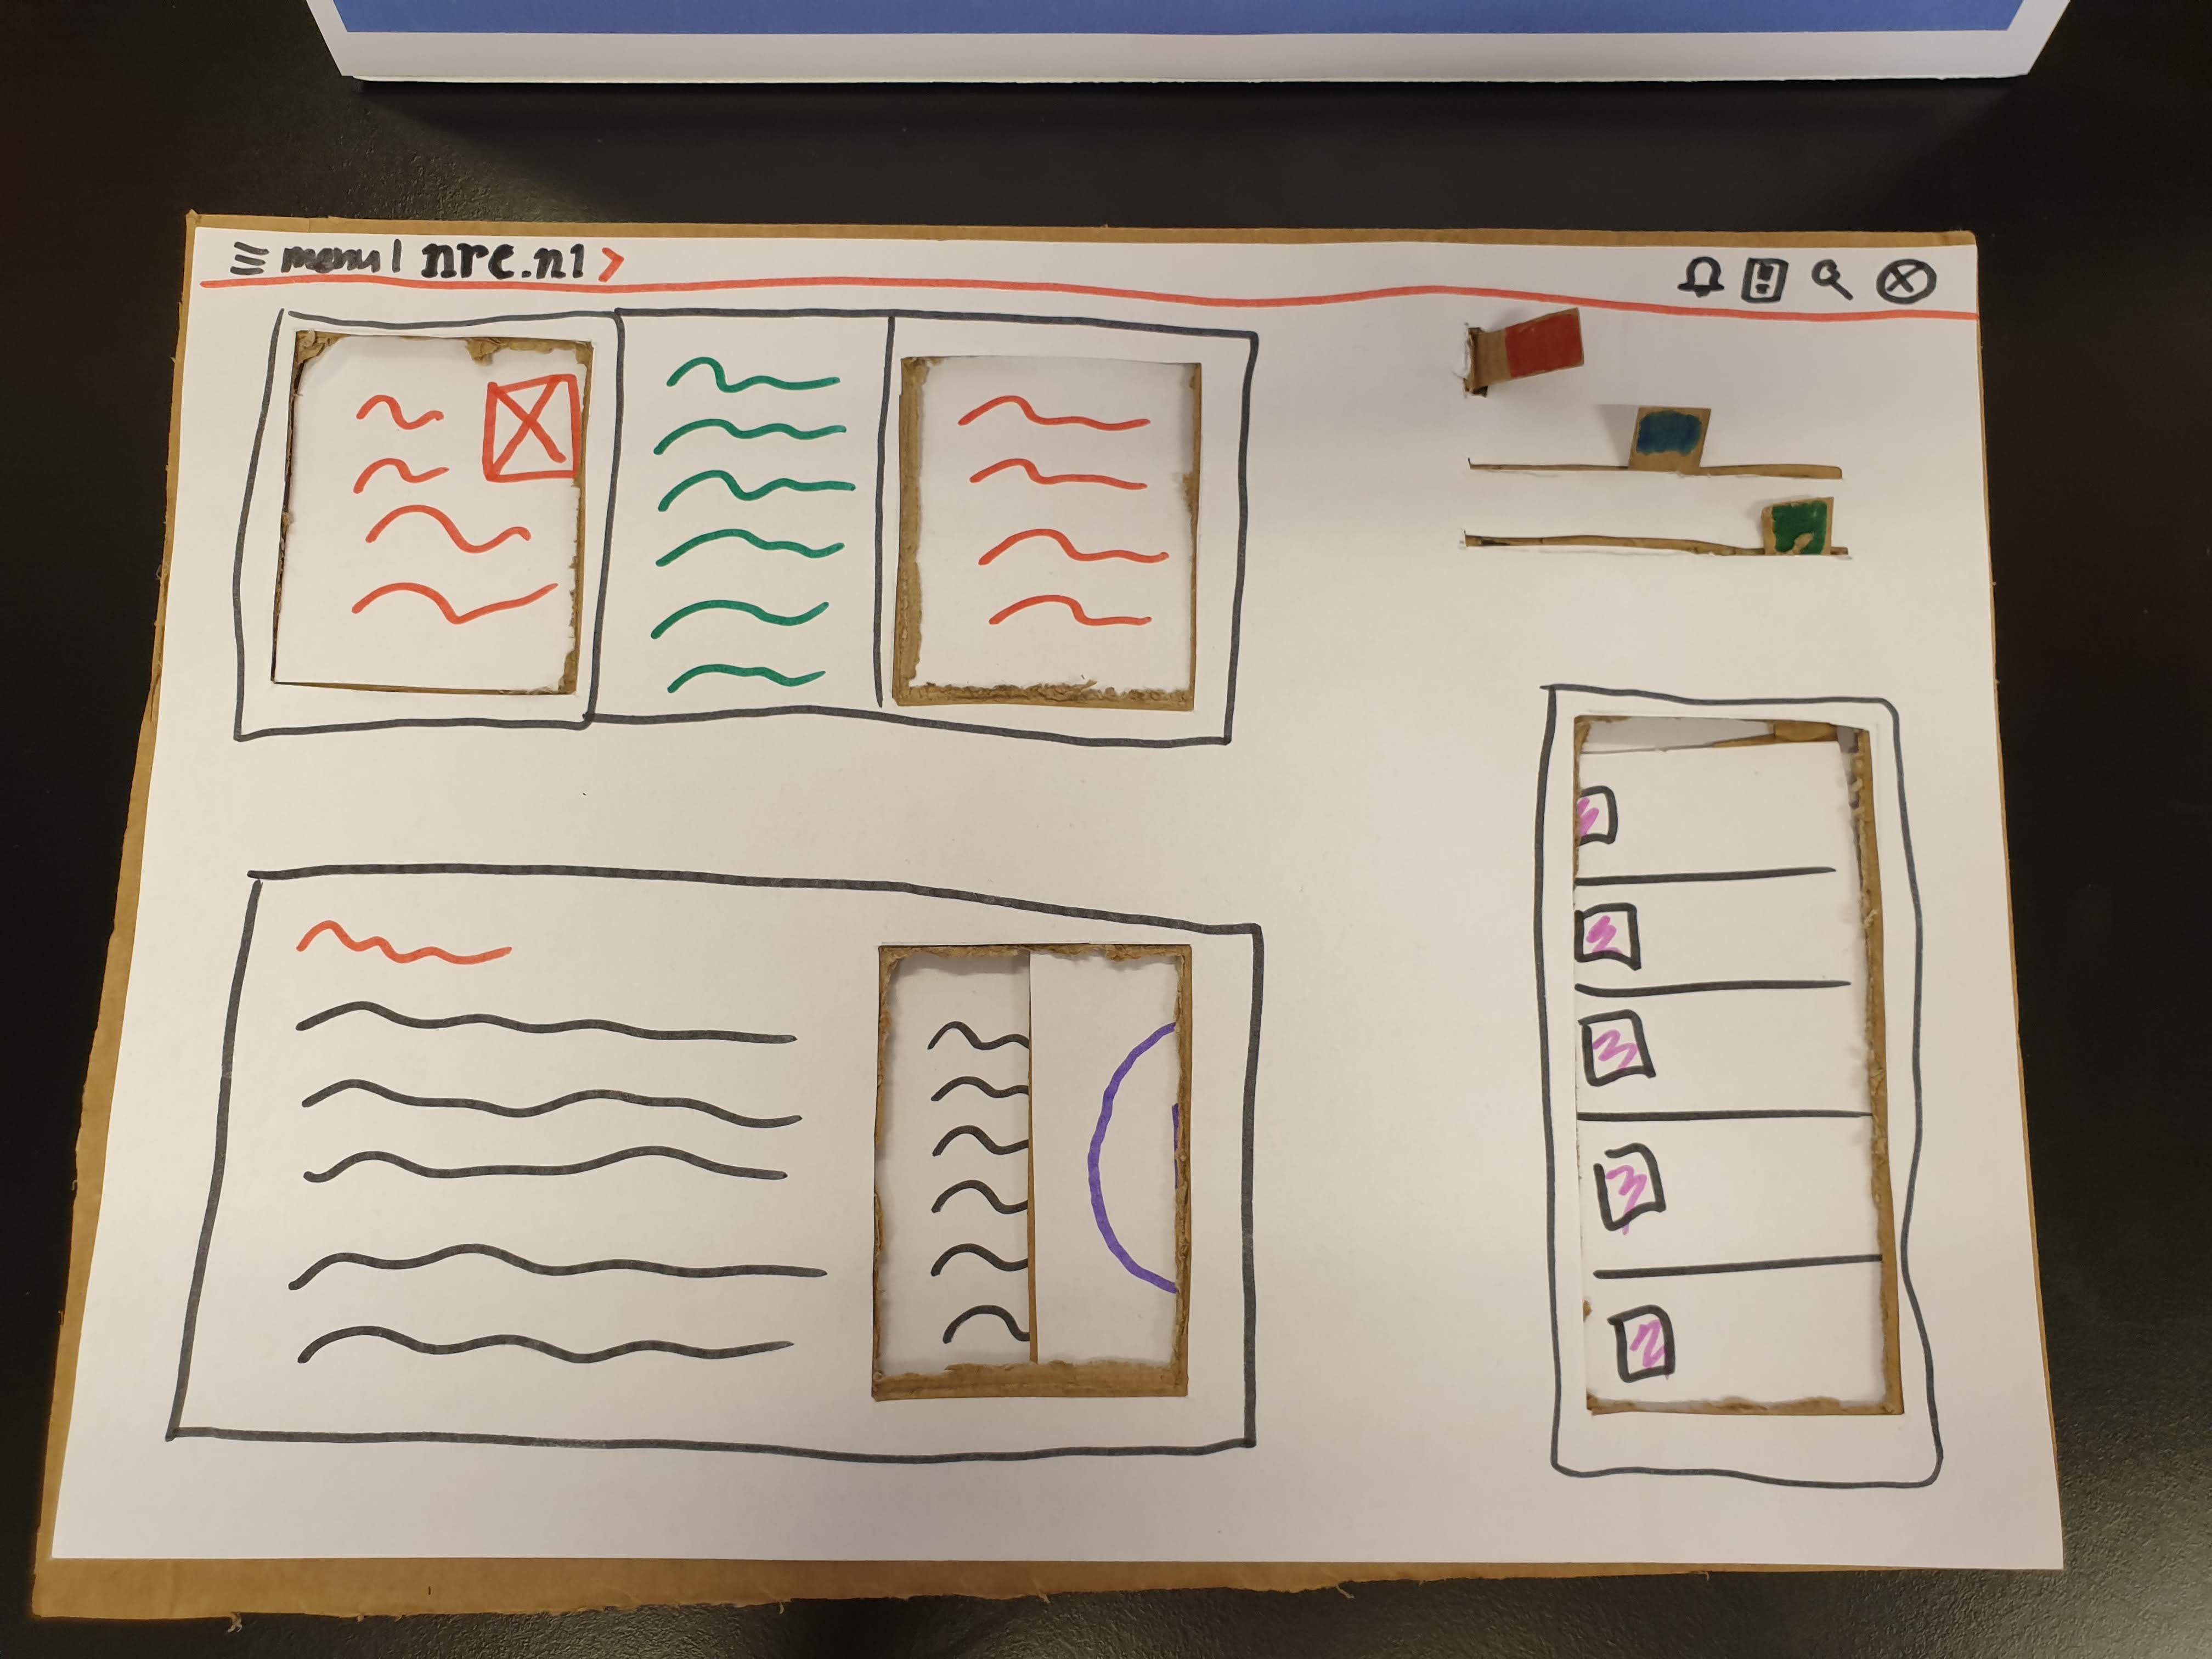 menu | nrc.nl >